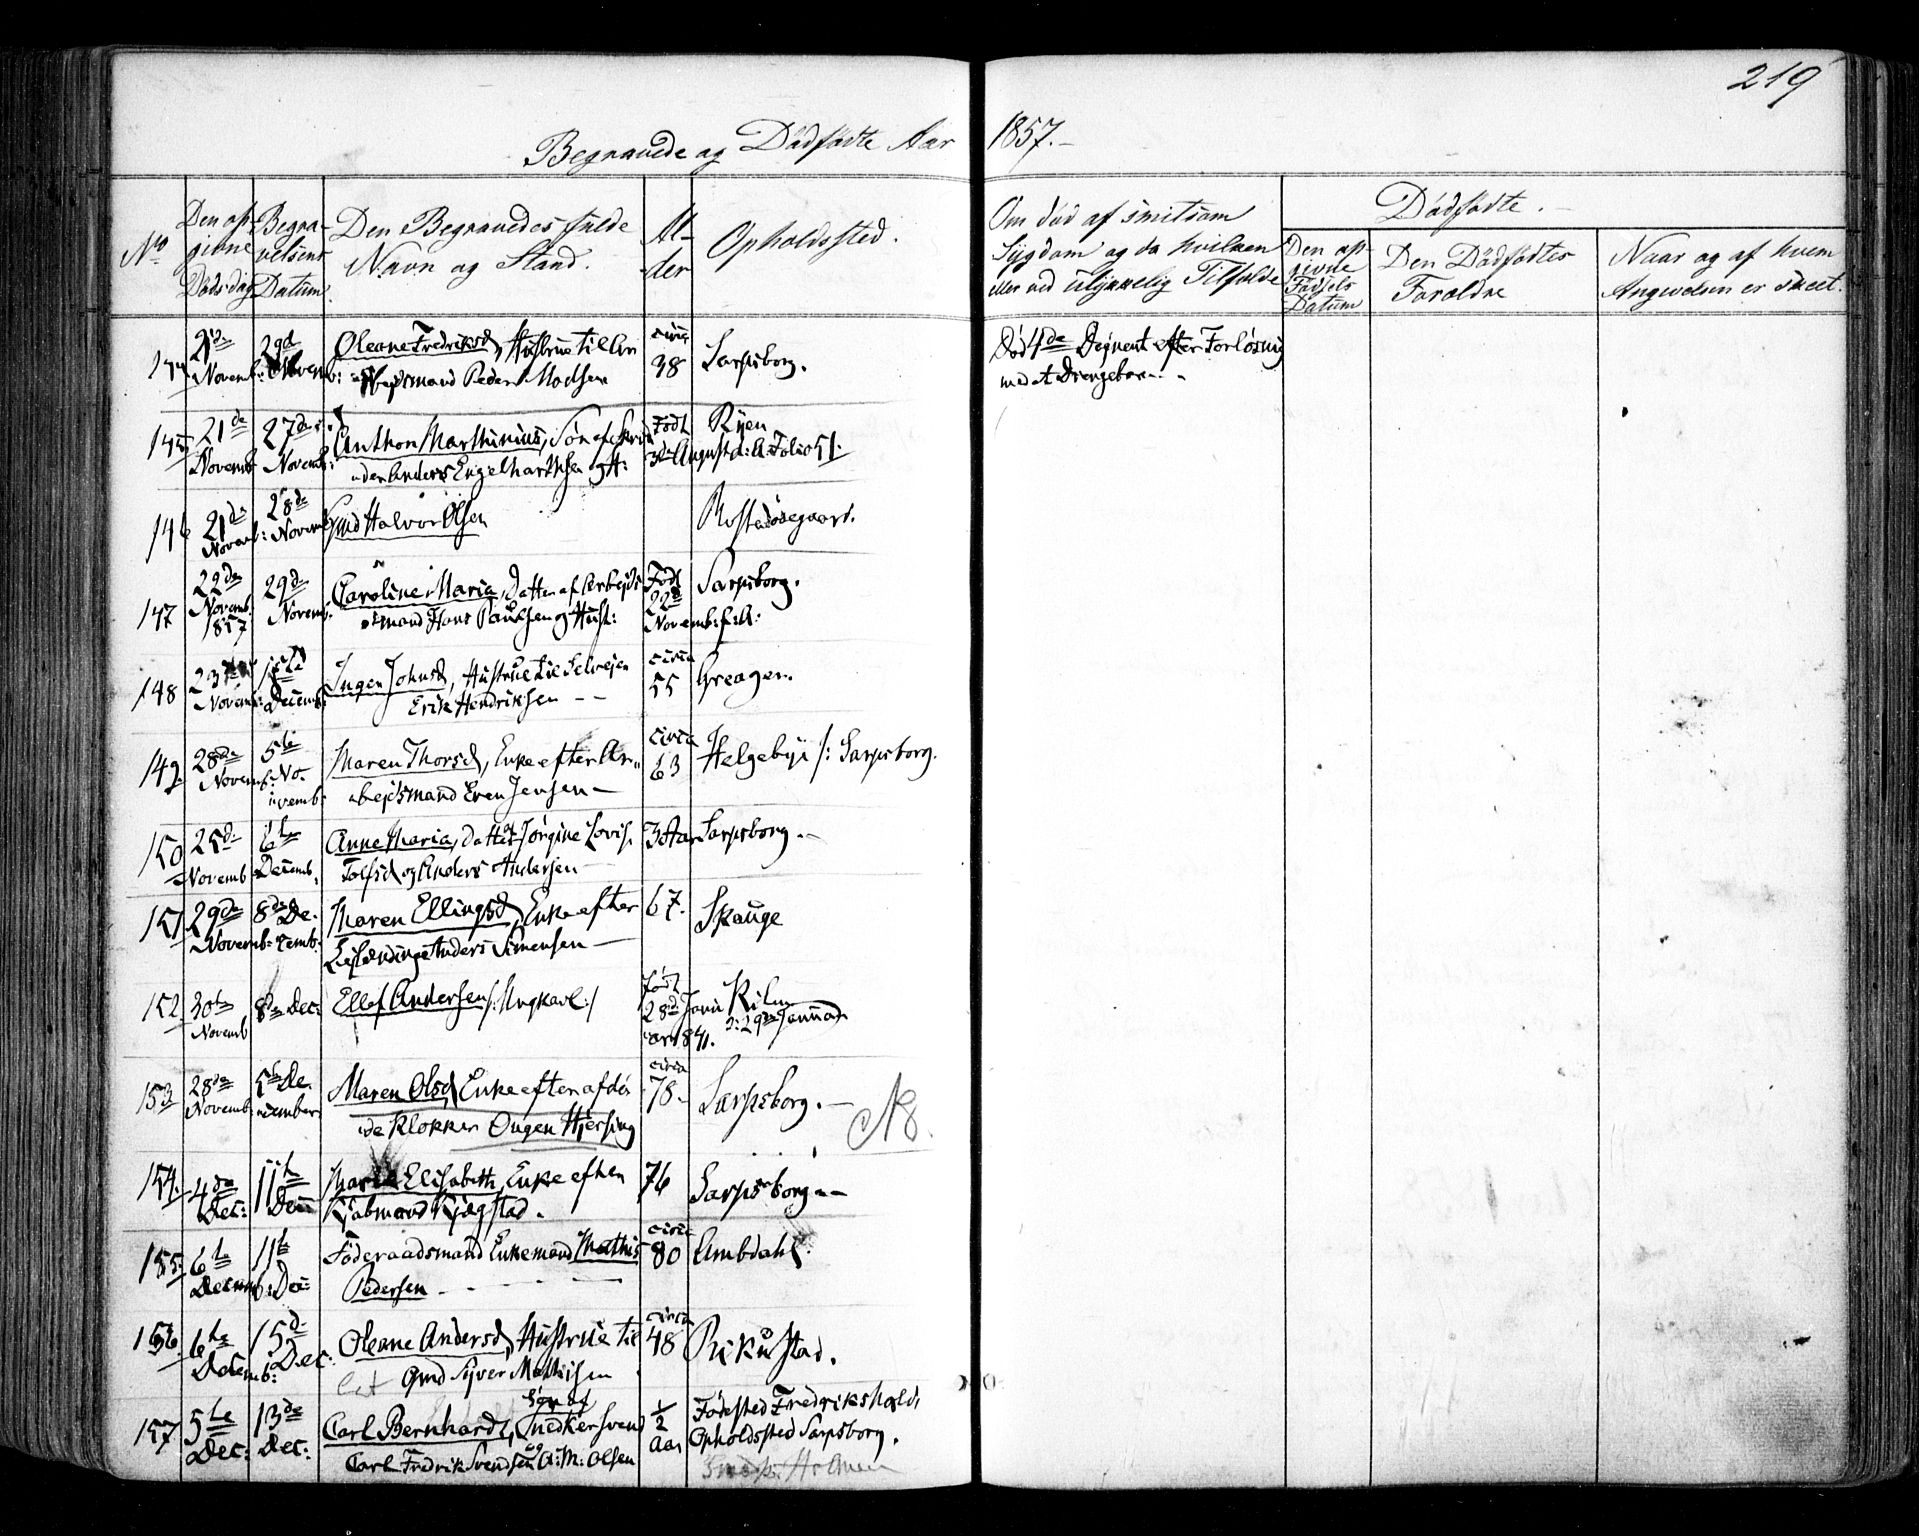 219
Begravede og Dödfödte Aar 1857.-
No
Den op-
givne
Döds-dag
Begra-
velsens
Datum
Den Begravedes fulde
Navn og Stand.
Al-
der
Opholdssted.
Om död af smitsom
Sygdom og da hvilken
eller ved ulykkelig Tilfælde
Dödfödte.-
Den op-
givne
Fødsels
Datum
Den Dödfödtes
Forældre
Naar og af hvem
Angivelsen er skeet.
21de
Novemb:
29d
Novemb:
Oleane Fredriksd, Hustrue til Ar
bejdsmand Peder Madsen
circa
38
Sarpsborg.
Død 4de Døgnet efter Forløsning
med et Drengebarn.-
145
21de
Novemb
27de
Novemb:
Anthon Marthinius, Søn af
Anders Engelharthsen og H:
Født
3de August d: A. Folio 51.
Ryen
146
21de
Novemb:
28de
Novemb
Gmd Halvor Olsen
147
22de
Novemb.
1857
29de
Novemb.
Caroline Maria, Datter af Arbejds
mand Hans Paulsen og Hust:
Født
22de
Novemb: f: A:
Sarpsborg.
148
23de
Novemb:
1ste
Decemb:
Ingen Johnsd, Hustrue til Selvejer
Erik Hendriksen - -
circa
55
Greager.
149.
28de
Novemb:
5te
No-
vemb:
Maren Thorsd, Enke efter Ar-
bejdsmand Even Jensen -
circa
63
Helgebye /: Sarpsborg.
150
25de
Novemb
6te
Decemb.
Anne Maria, Datter af Jörgine Lovis.
Tolfsd og Anders Andersen -
3 Aar
Sarpsborg.-
151
29de
Novemb:
8de De-
cemb:
Maren Ellingsd, Enke efter
Anders Simensen -
67.
Skauge
152.
30te
Novemb
8de Dec:
Ellef Andersen /: Ungkarl :/
Født
28de Janu
ar 1841.
29de Januar
153
28de
Novemb:
5te De-
cember
Maren Olsd, Enke efter afdö-
de Klokker Ougen Hjersing
circa
78.-
Sarpsborg.-
N8.
154.
4de
Dec:
11te
Dec
Maria Elisabeth, Enke efter
Kjöbmand Kjögstad.
76
Sarpsborg --
155.
6te
Decemb:
11te
Dec:
Föderaadsmand Enkemand Mathis
Pedersen - - - -
circa
80
Ambdahl.
156.
6te
Decemb:
15de
Dec:
Oleane Andersd, Hustrue til
Gmd Syver Mathisen
circa
48
Rikustad.
157
5te
Dec:
13de
Dec:
Søn af
Carl Bernhard, Snedkersvend
Carl Fredrik Svendsen og A: M: Olsen
1/2
Aar
Födested Frederikshald,
Opholdssted Sarpsborg.